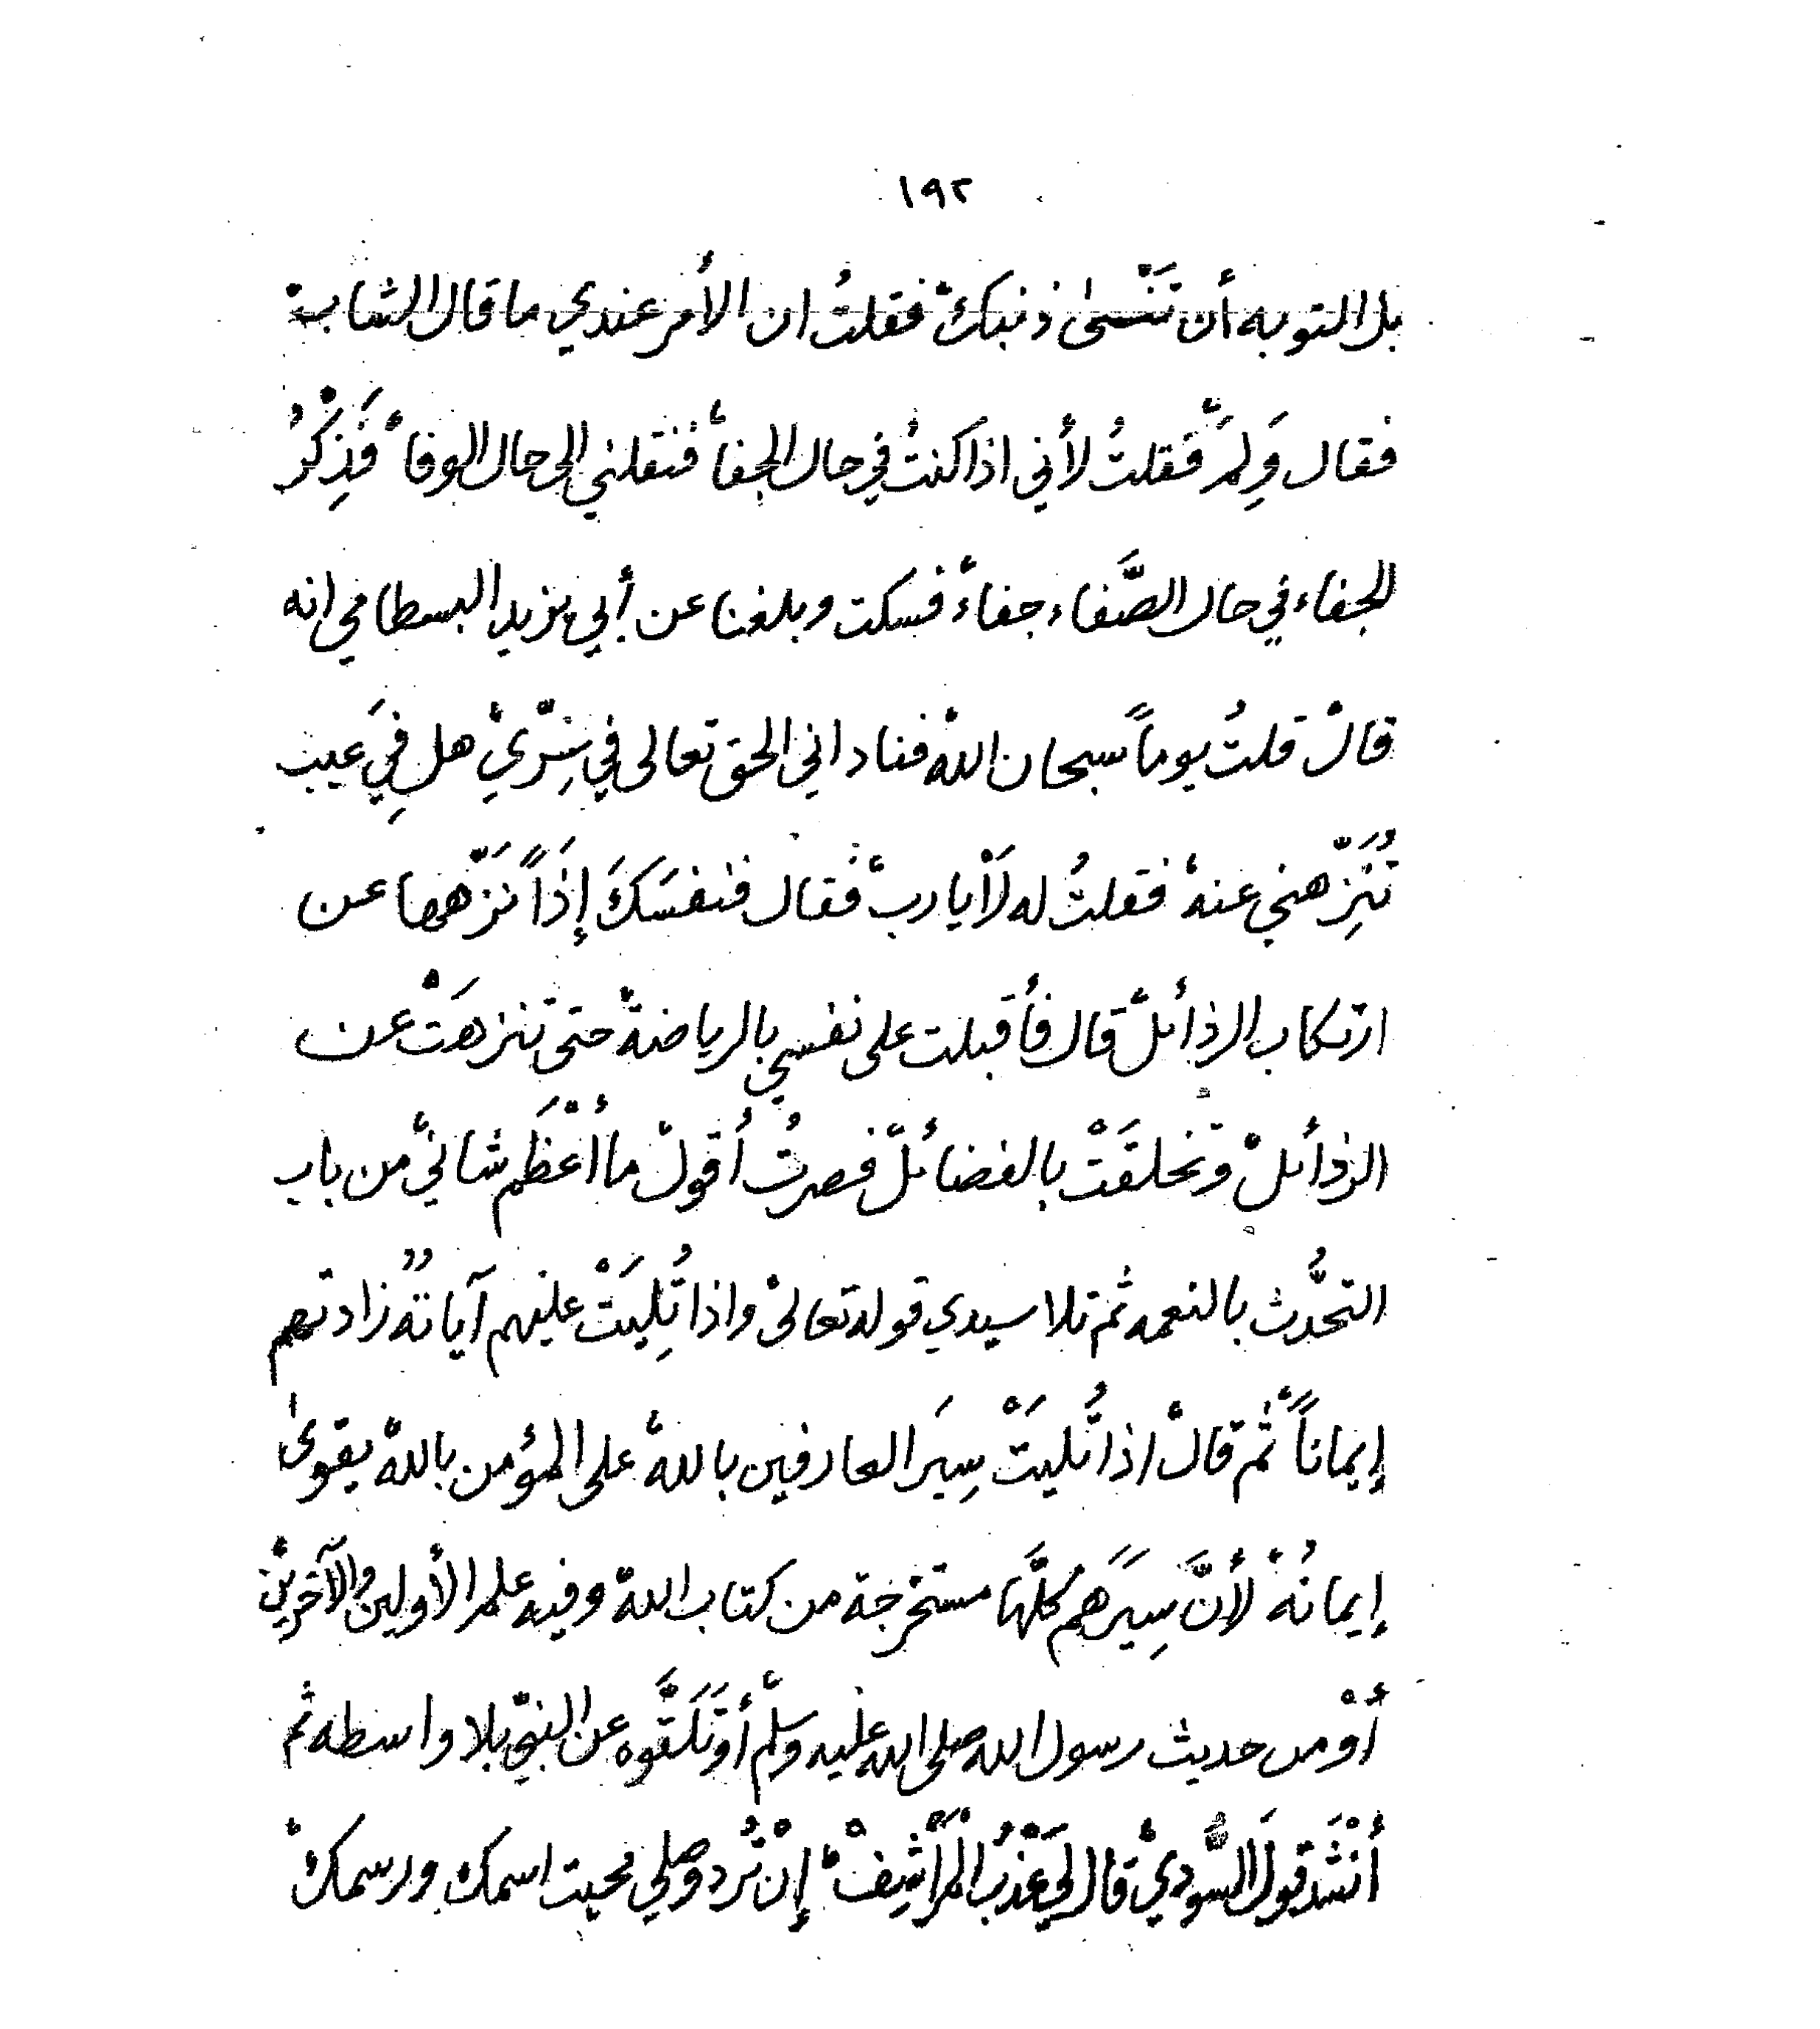 ١٩٢
بل التوبه أن تَنْسىٰ ذنبك فقلتُ ان الأمر عندي ما قال الشاب
فقال وَلِمَ فقلتُ لأني اذا كنتُ في حال الجفاْ فنقلني الى حال الوفاْ فَذِكْرُ
الجفاء في حال الصَّفاء جفاءْ فسكت وبلغنا عن أبي يزيد البسطامي انه
قالْ قلتُ يوماً سبحان اللهْ فناداني الحق تعالى في سِرّيْ هل فِيَ عيب
تُنَزِّهني عنهْ فقلتُ له لَاْ يا ربْ فقال فنفسَكَ إِذَاً نَزِّهها عن
ارتكاب الرذائلْ قال فأقبلت على نفسي بالرياضةْ حتى تنزهَتْ عن
الرذائلْ وتخلقَتْ بالفضائلْ فصرتُ أقولْ ما أعْظَم شانيْ من باب
التحَدُّث بالنعمه ثم تلا سيدي قوله تعالىْ واذا تُلِيَتْ عليهم آياتهُ زادتهم
إيماناً ثم قالْ اذا تُليَتْ سِيَر العارفين باللهْ على المؤمن باللهْ يقوىٰ
إيمانُهْ لأنَّ سِيَرَهم كلَّها مستخرجة من كتاب اللهْ وفيه علم الأولين والآخرينْ
أوْ من حديث رسول الله صلى الله عليه وسلّم أو تَلَقَّوه عن النبيّ بلا واسطه ثم
أنْشَد قولَ السُّوديْ قال لي عَذْبُ الْمَرَاْشِفْ إنْ تُرْد وصلي محيت اسمك ورسمكْ